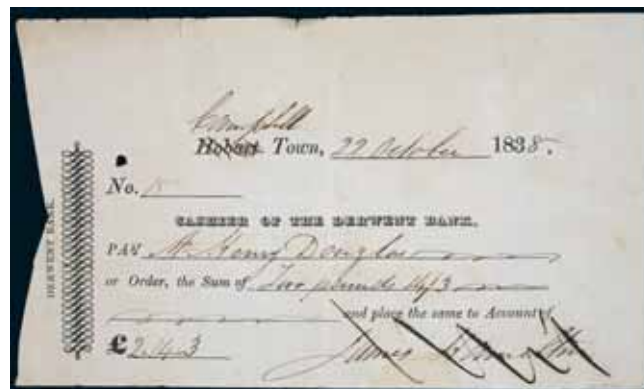 Campbell
Hobart Town, 29 October 1838.
No.
CASHIER OF THE DERWENT BANK.
PAY Mr Henry Douglas
or Order, the Sum of Two pounds 14/3
and place the same to Account of
£2.14.3 James
DERWENT BANK.